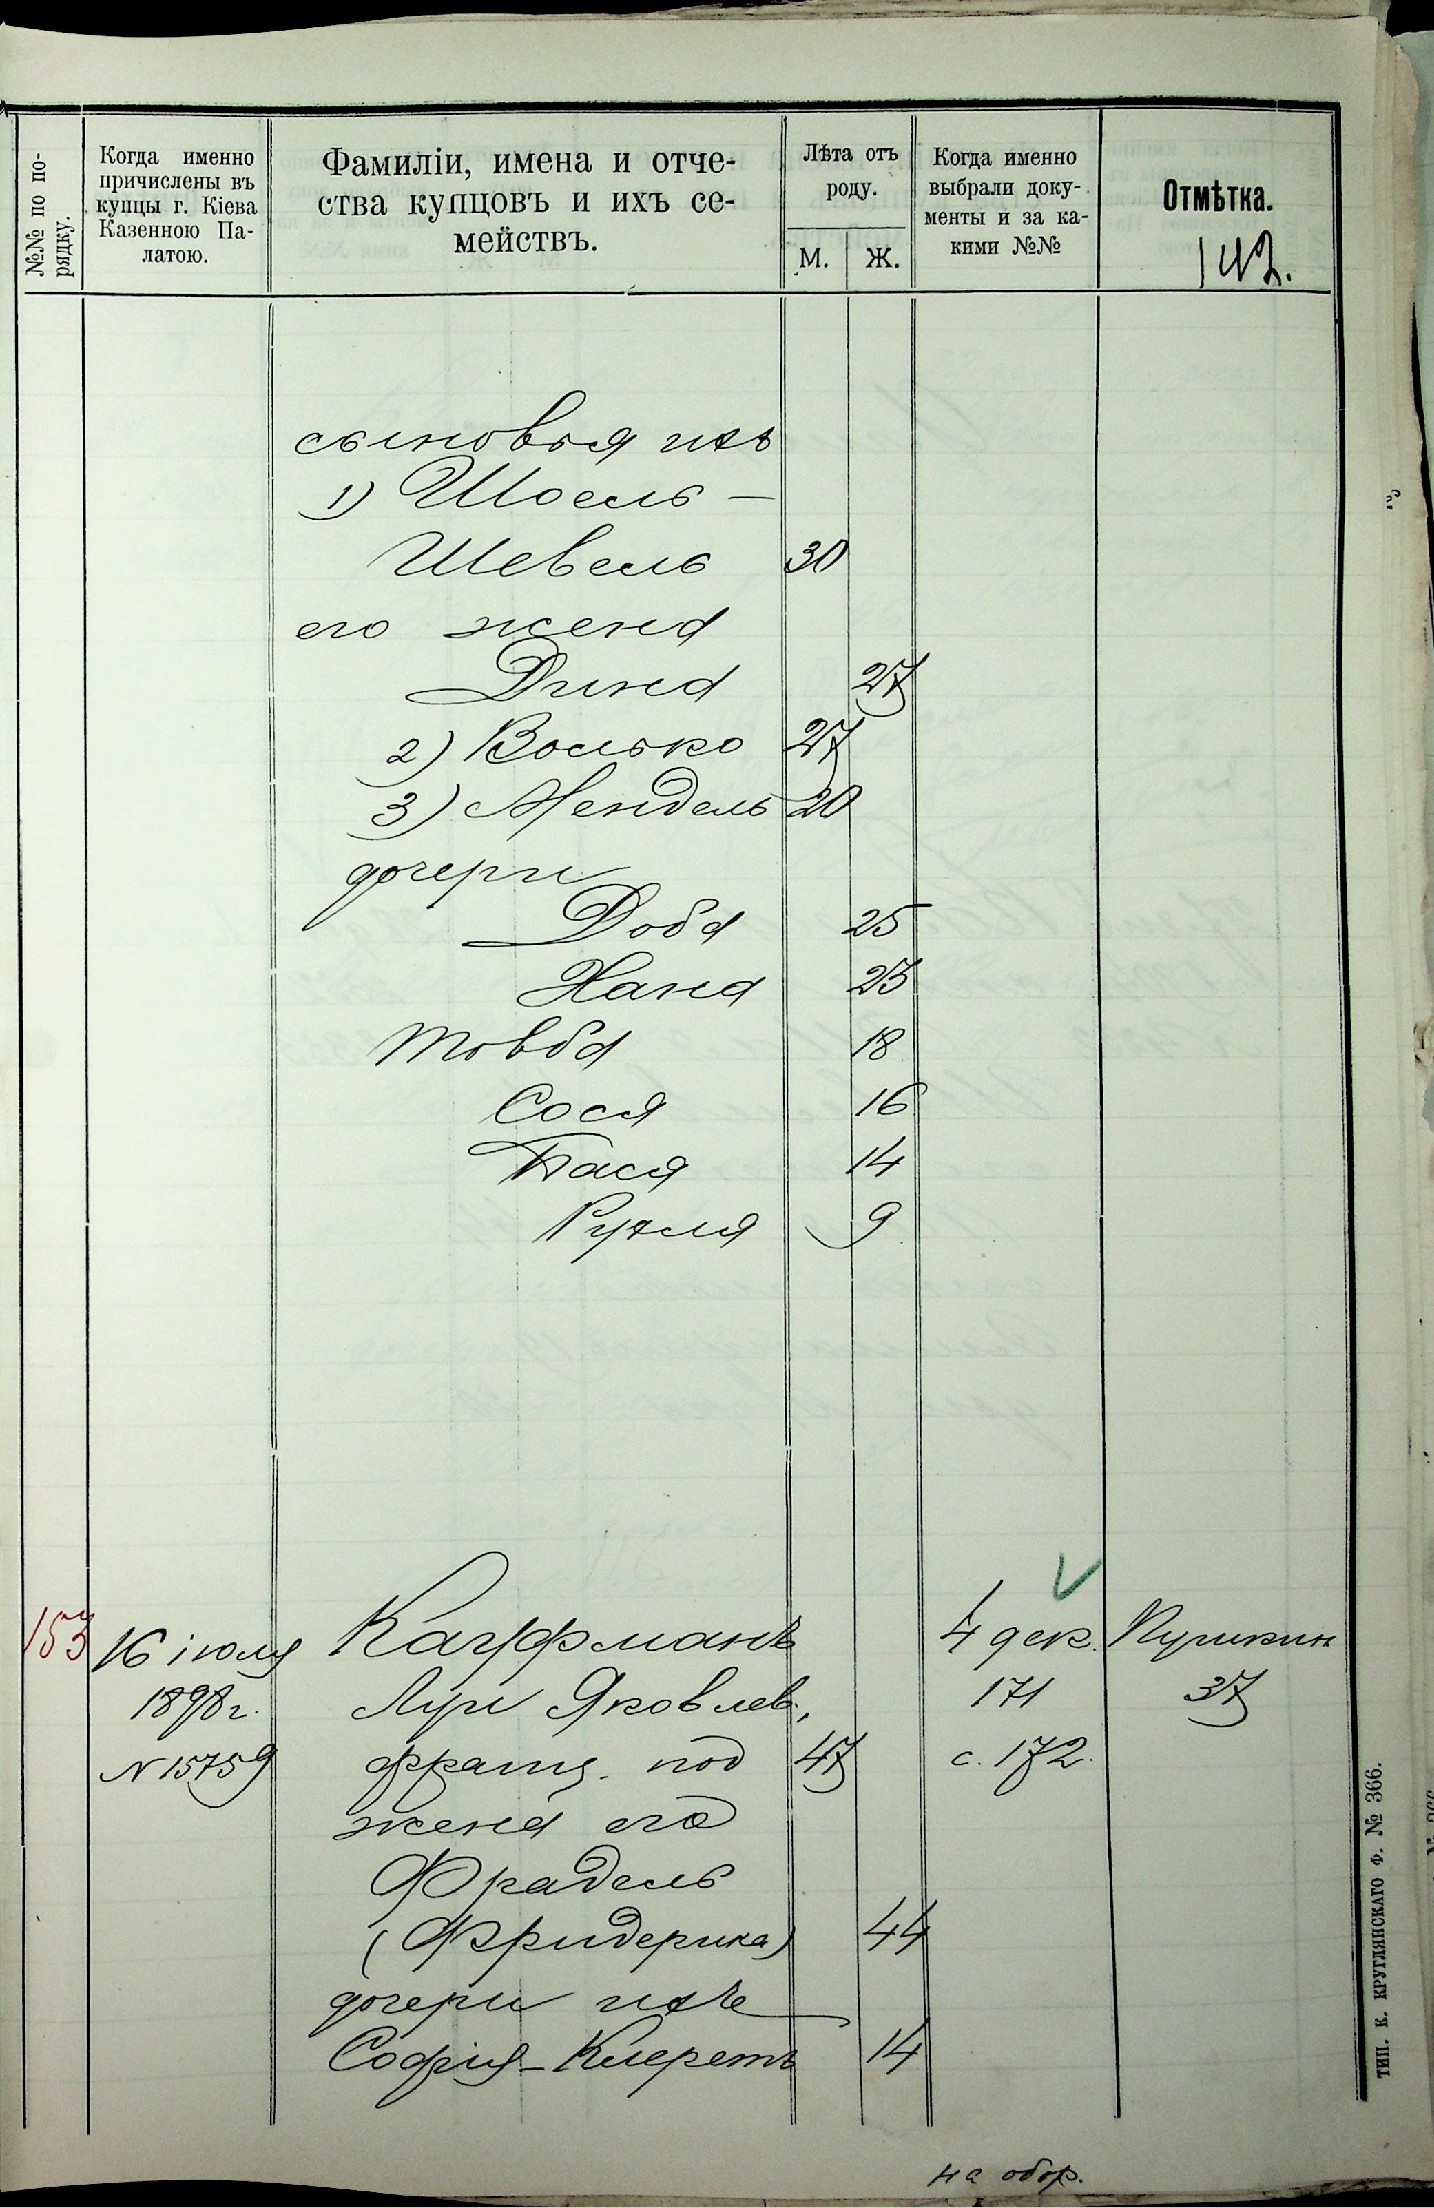 №№ по по-
рядку.
Когда именно
причислены въ
купцы г. Кіева
Казенною Па-
латою.
Фамиліи, имена и отче-
ства купцовъ и ихъ се-
мействъ.
Лѣта отъ
роду.
М. Ж.
Когда именно
выбрали доку-
менты и за ка-
кими №№
Отмѣтка.
142.
сыновья ихъ
1) Шоель –
Шевель 30
его жена
Дина 27
2) Волько 27
3) Мендель 20
дочери
Доба 25
Хана 23
Товба 18
Сося 16
Бася 14
Рухля 9
153 16 іюля Кауфманъ 4 дек. Пушкин
1898 г. Луи Яковлев., 171 37
N 15759 франц. под 47 с. 172.
жена его
Фрадель
(Фридерика) 44
дочери ихъ
Софія-Клеретъ 14
на обор.
ТИП. К. КРУГЛЯНСКАГО Ф. № 366.